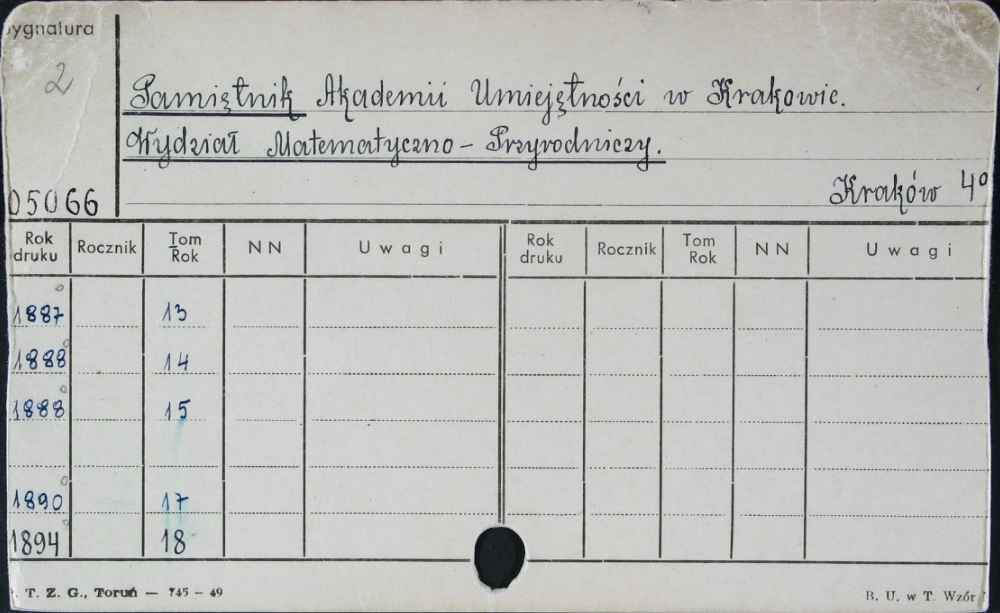 ygnatura
2
Pamiętnik Akademii Umiejętności w Krakowie.
Wydział Matematyczno - Przyrodniczy.
05066
Kraków 4º
Rok druku Rocznik Tom Rok NN Uwagi Rok druku Rocznik Tom Rok NN Uwagi
1887 13
1888 14
1888 15
1890 17
1894 18
T. Z. G., Toruń — 745 - 49
B. U. w T. Wzór